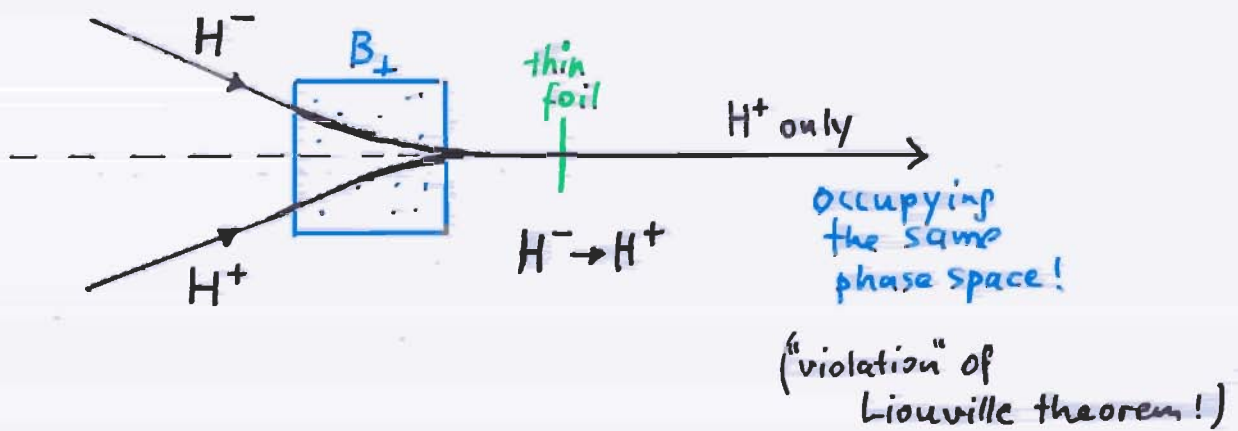 H⁻
B⊥
thin
foil
H⁺ only
H⁺
H⁻→H⁺
occupying
the same
phase space!
("violation" of
Liouville theorem!)